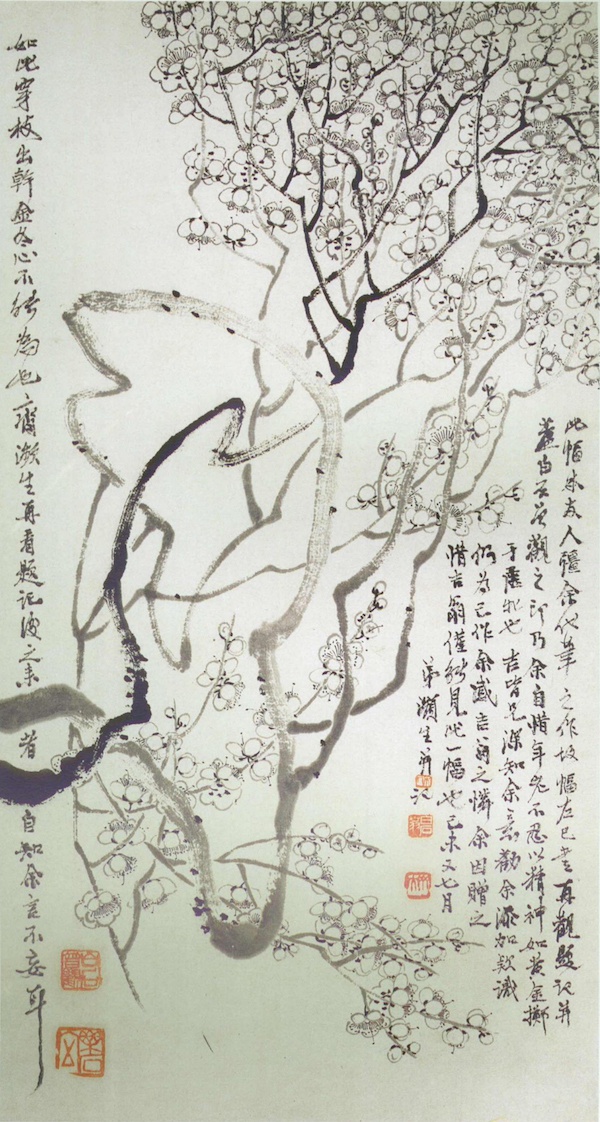 此幅友人彊余代筆之作故幅左已書再觀題記并
蓋白石觀之印乃余自惜年老不忍以精神如黃金擲
于虛牝也吉皆兄深知余意勸余添加款識
仍為己作余感吉翁之憐余因贈之
惜吉翁僅能見此一幅也己未又七月
弟瀕生并記
如此穿枝出幹金冬心不能為也齊瀕生再看題記後之來者自知余言不妄耳